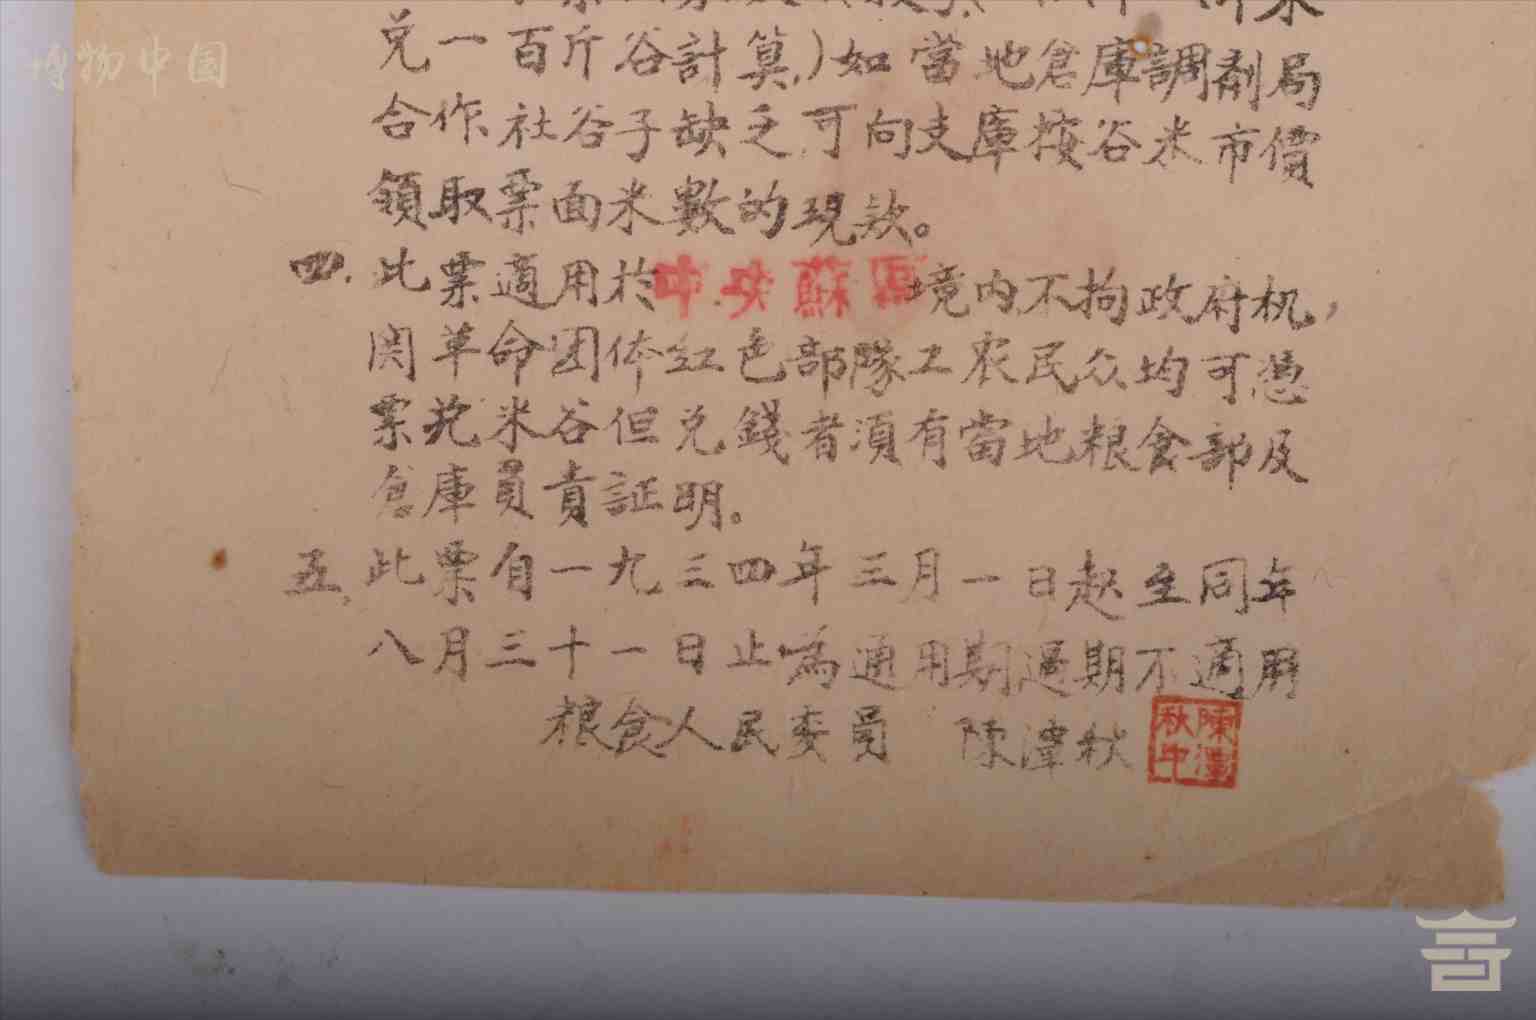 博物中国
兑一百斤谷計算)如當地倉庫調劑局
合作社谷子缺乏可向支庫按谷米市價
領取票面米數的現款。
四.此票適用於中央蘇區境内不拘政府机,
関革命団体红色部隊工农民众均可憑
票兑米谷但兑錢者須有當地粮食部及
倉庫員責証明。
五.此票自一九三四年三月一日起至同年
八月三十一日止為通用期過期不適用
粮食人民委員 陳潭秋
陳潭秋印